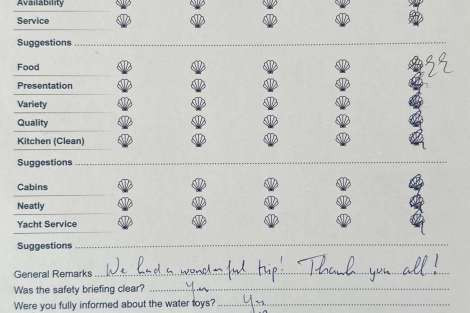 Availability
Service
Suggestions
Food
Presentation
Variety
Quality
Kitchen (Clean)
Suggestions
Cabins
Neatly
Yacht Service
Suggestions
General Remarks We had a wonderful trip! Thank you all!
Was the safety briefing clear? Yes
Were you fully informed about the water toys? Yes